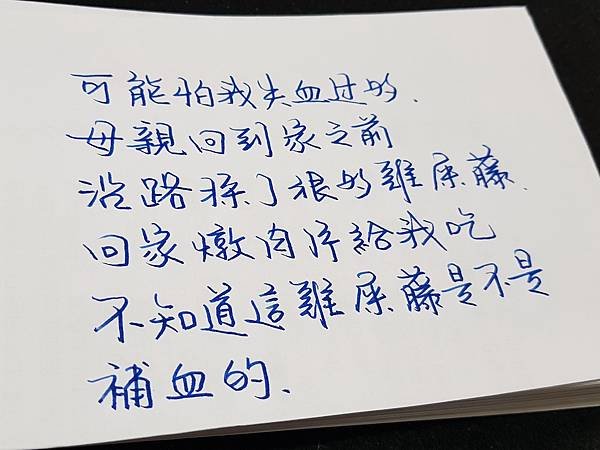 可能怕我失血过多.
母親回到家之前
沿路採了很多雞屎藤.
回家燉肉片給我吃
不知道這雞屎藤是不是
補血的.